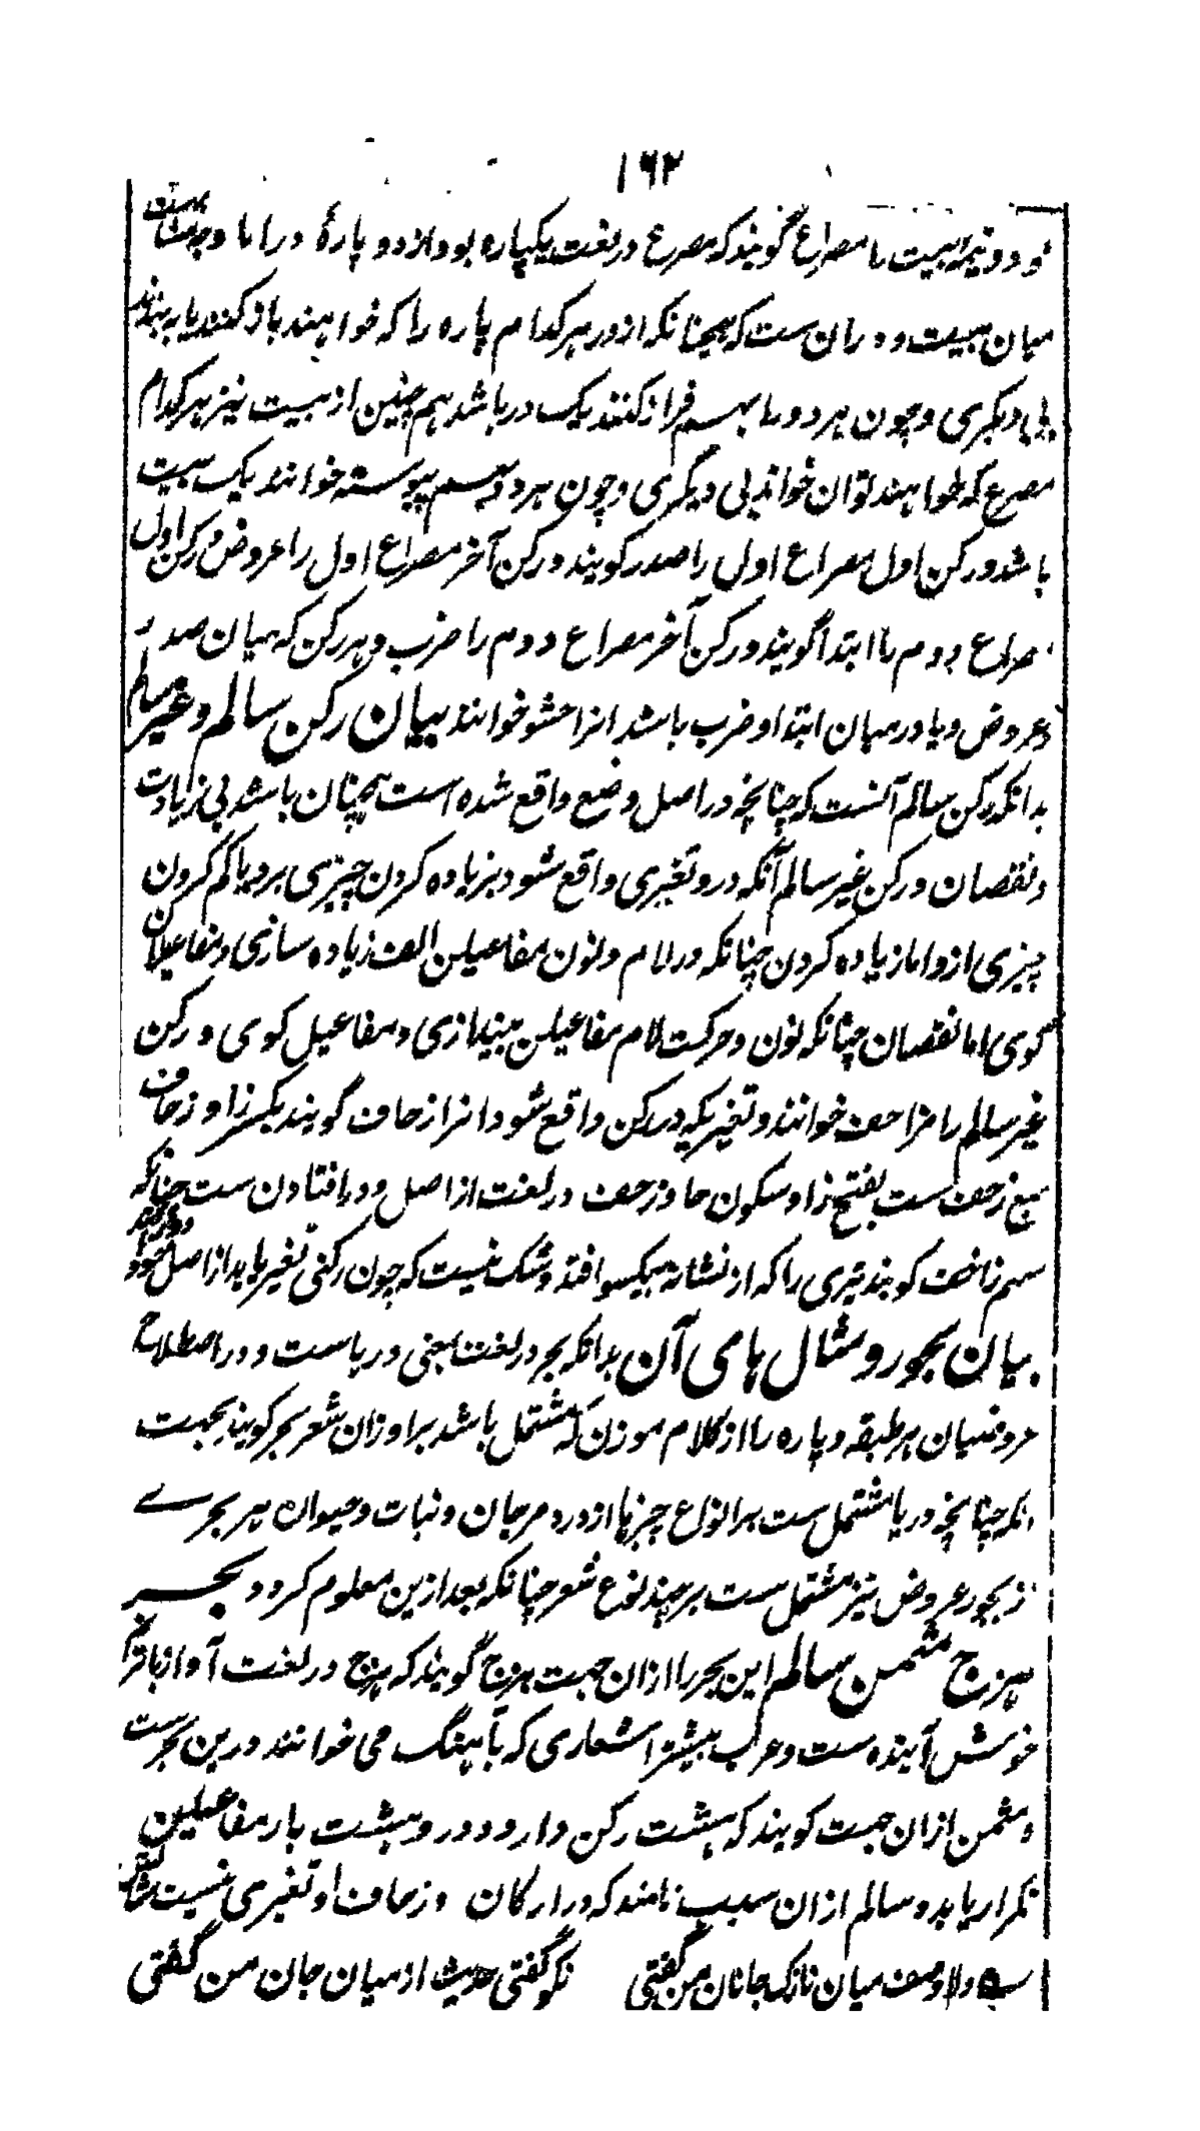 ۱۶۲
و دو نیمهٔ بیت را مصراع گویند که مصرع در لغت یکپاره بود از دو پارهٔ در اما وجه مشابهت
میان بیت و در آن ست که همچنانکه از در هر کدام پاره را که خواهند باز کنند یا به بندند
بی دیگری و چون هر دو را بهم فراز کنند یک در باشد هم چنین از بیت نیز هر کدام
مصرع که خواهند توان خواند بی دیگری و چون هر دو بهم پیوسته خوانند یک بیت
باشد و رکن اول مصراع اول را صدر گویند و رکن آخر مصراع اول را عروض و رکن اول
مصراع دوم را ابتدا گویند و رکن آخر مصراع دوم را ضرب و هر رکن که میان صدر
و عروض و یا در میان ابتدا و ضرب باشد انرا حشو خوانند بیان رکن سالم و غیر سالم
بدانکه رکن سالم آنست که چنانچه در اصل وضع واقع شده است همچنان باشد بی زیادت
و نقصان و رکن غیر سالم آنکه درو تغیری واقع شود بزیاده کردن چیزی برو یا کم کردن
چیزی ازو اما زیاده کردن چنانکه در لام و نون مفاعیلن الف زیاده سازی و مفاعیلان
گوی اما نقصان چنانکه نون و حرکت لام مفاعیلن بیندازی و مفاعیل گوی و رکن
غیر سالم را مزاحف خوانند و تغیریکه در رکن واقع شود انرا زحاف گویند بکسر زا و زحاف
جمع زحف ست بفتح زا و سکون حا و زحف در لغت از اصل دور افتادن ست چنانکه
سهم زاحف گویند تیری را که از نشانه بیکسو افتد و شک نیست که چون رکنی تغیر یابد از اصل خود دور افتد
بیان بحور و مثال های آن بدانکه بحر در لغت بمعنی دریاست و در اصطلاح
عروضیان هر طبقه و پاره را از کلام موزن که مشتمل باشد بر اوزان شعر بحر گویند بجهت
انکه چنانچه دریا مشتمل ست بر انواع چیزها از در و مرجان و نبات و حیوان هر بحرے
از بحور عروض نیز مشتمل ست بر چند نوع شعر چنانکه بعد ازین معلوم گردد بحر
هزج مثمن سالم این بحر را ازان جهت هزج گویند که هزج در لغت آواز با ترنم
خوش آینده ست و عرب بیشتر اشعاری که بآهنگ می خوانند درین بحر ست
و مثمن ازان جهت گویند که هشت رکن دارد و درو هشت بار مفاعیلن
تکرار یابد و سالم ازان سبب نامند که در ارکان و زحاف او تغیری نیست
دلا وصف میان نازک جانان من گفتی نکو گفتی حدیث از میان جان من گفتی